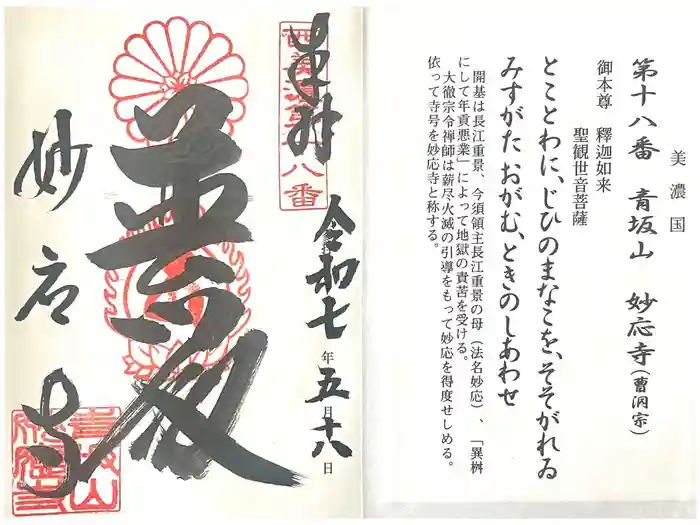 美濃国
第十八番 青坂山 妙応寺(曹洞宗)
御本尊 釋迦如来
聖観世音菩薩
とことわに、じひのまなこを、そそがれゐ
みすがた おがむ、ときのしあわせ
開基は長江重景、今須領主長江重景の母(法名妙応)、「異桝
にして年貢悪業」によって地獄の責苦を受ける。
大徹宗令禅師は薪尽火滅の引導をもって妙応を得度せしめる。
依って寺号を妙応寺と称する。
奉拝
西美濃第十八番
令和七年五月十八日
妙応寺